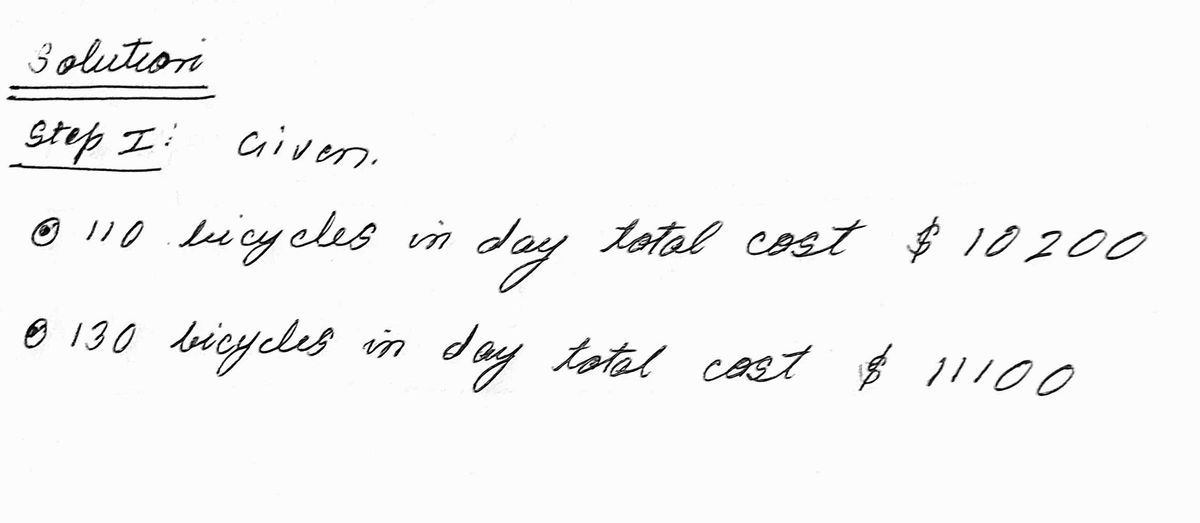 Solution
Step I: Given.
110 bicycles in day total cost $ 10200
130 bicycles in day total cost $ 11100